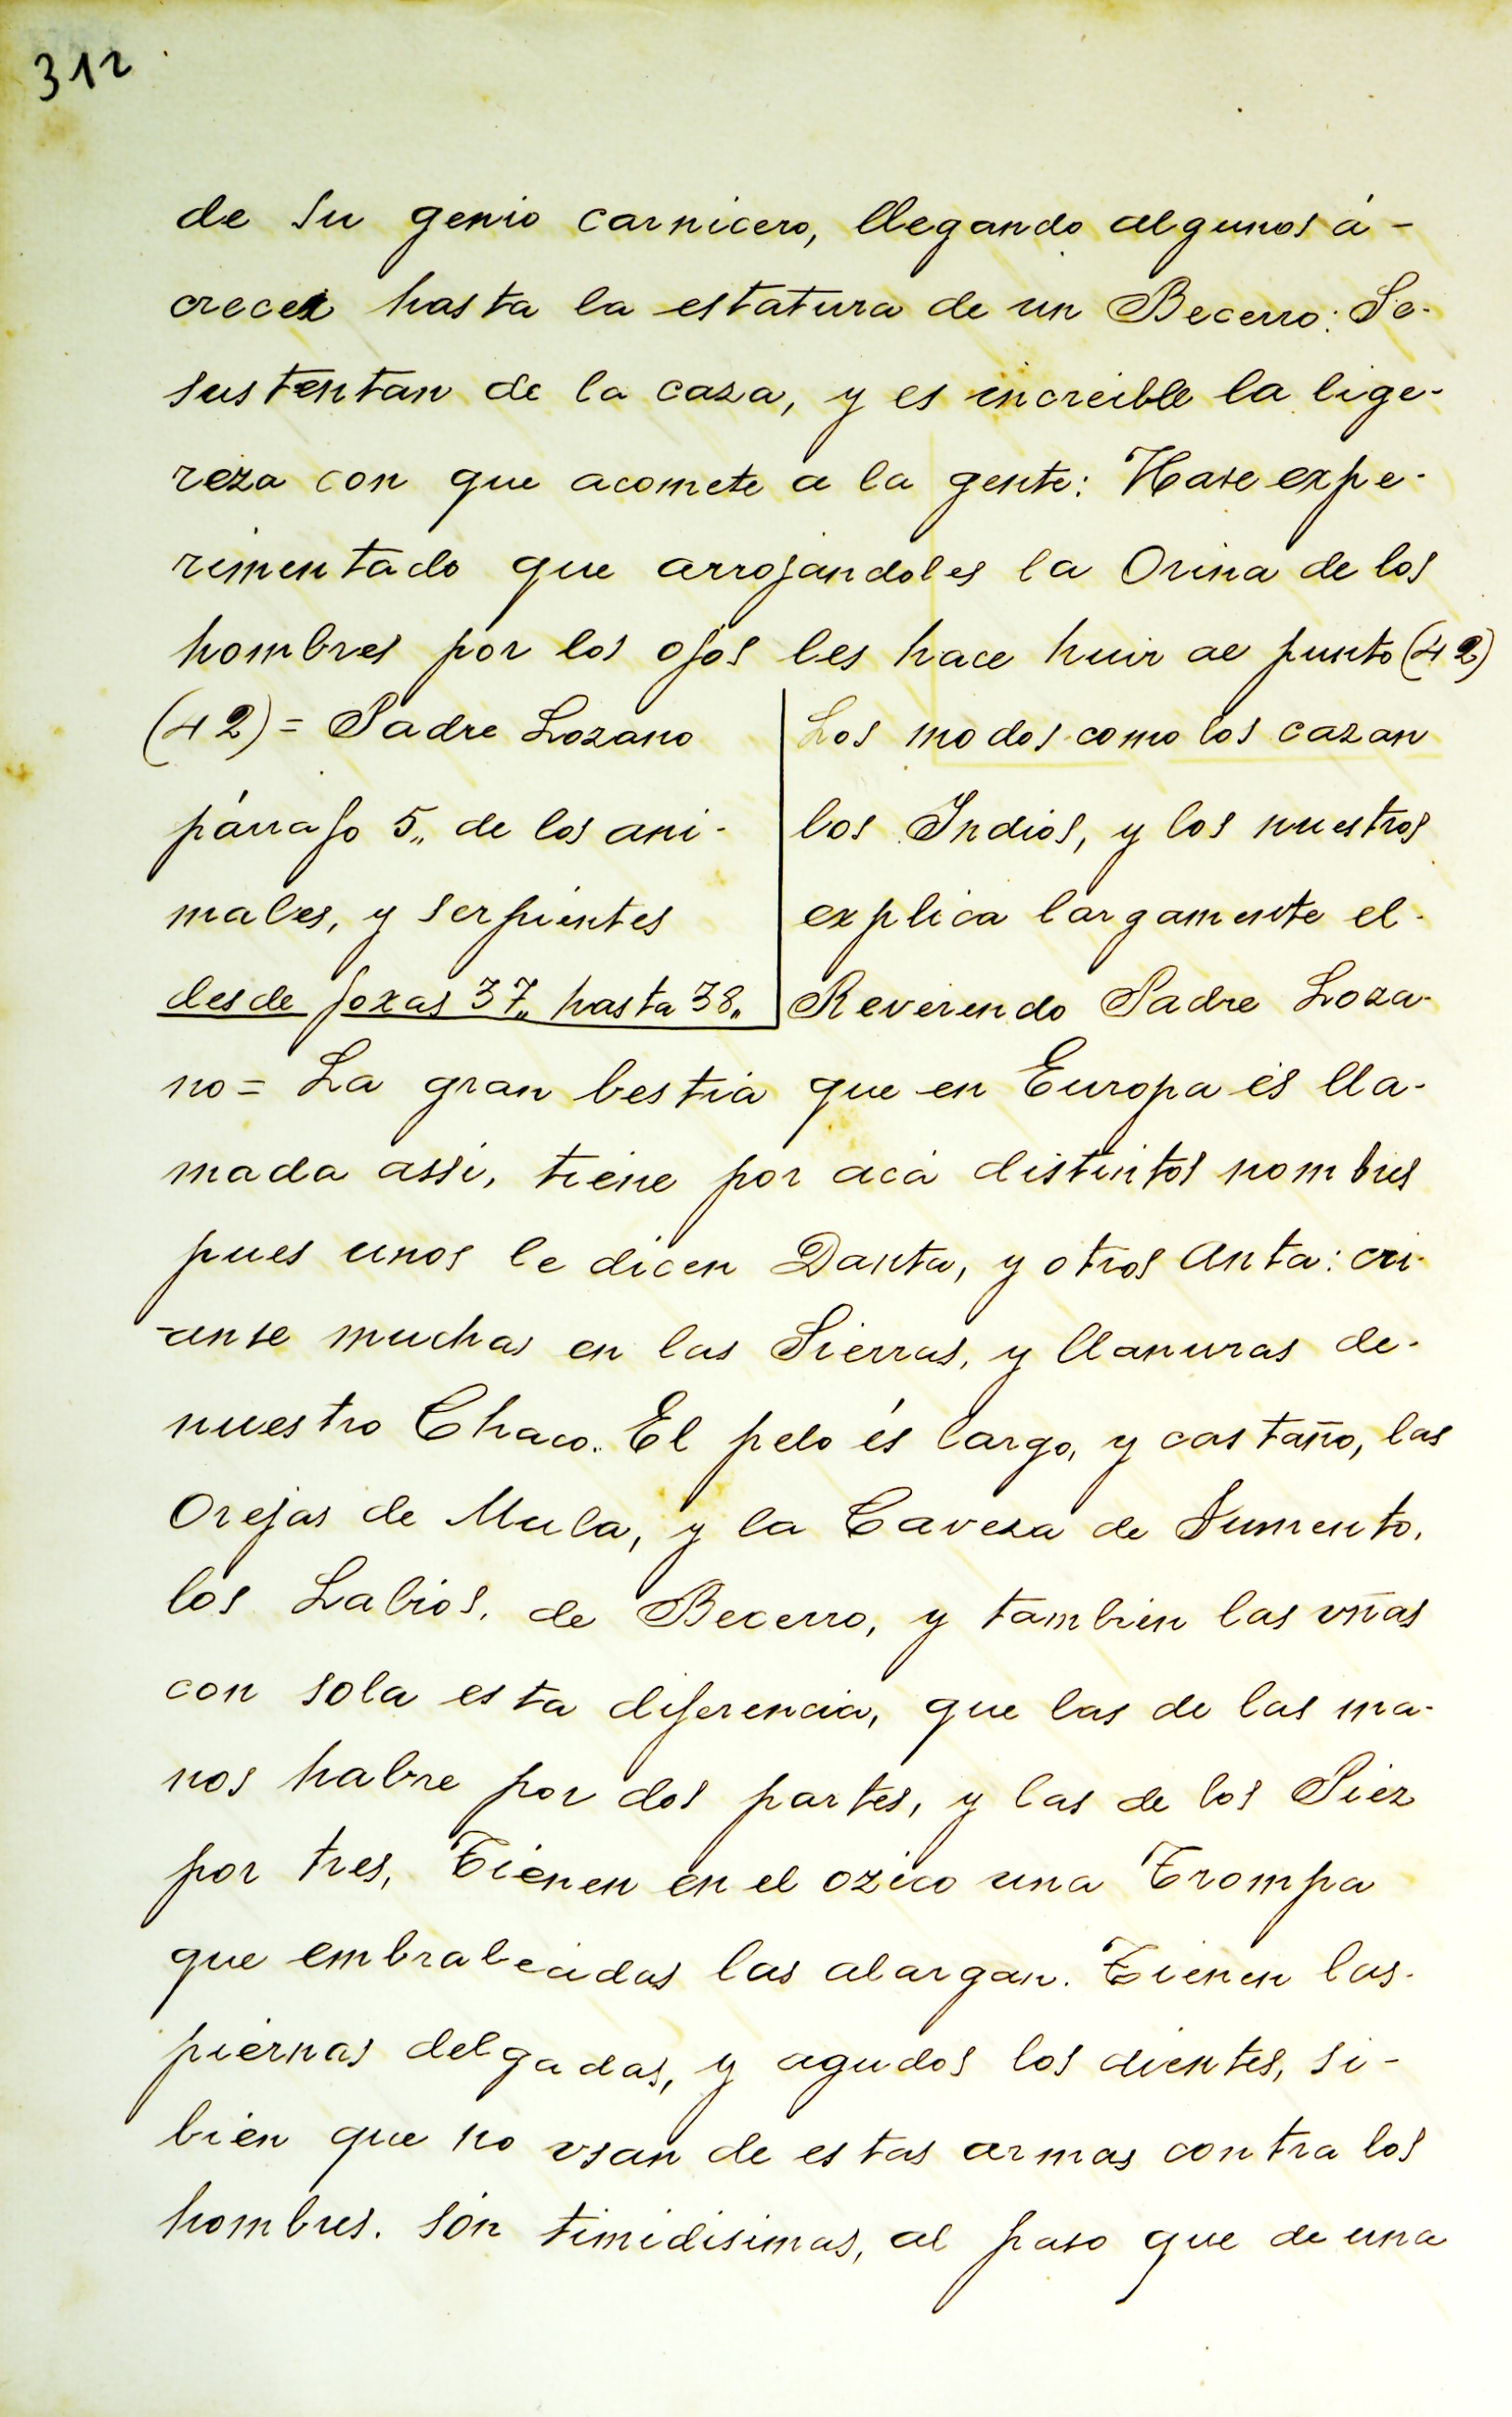 312
de su genio carnicero, llegando algunos á-
crecer hasta la estatura de un Becerro: Se-
sustentan de la caza, y es increible la lige-
reza con que acomete a la gente: Hase expe-
rimentado que arrojandoles la Orina de los
hombres por los ojos les hace huir al punto (42)
(42) = Padre Lozano
párrafo 5,, de los ani-
males, y serpientes
desde foxas 37,, hasta 38,,
Los modos como los cazan
los Indios, y los nuestros
explica largamente el-
Reverendo Padre Loza-
no = La gran bestia que en Europa és lla-
mada assi, tiene por acá distintos nombres
pues unos le dicen Danta, y otros Anta: cri-
-anse muchas en las Sierras, y llanuras de-
nuestro Chaco. El pelo és largo, y castaño, las
Orejas de Mula, y la Caveza de Jumento,
los Labios, de Becerro, y tambien las vñas
con sola esta diferencia, que las de las ma-
nos habre por dos partes, y las de los Piez
por tres, Tienen en el ozico una Trompa
que embrabecidas las alargan. Tienen las-
piernas delgadas, y agudos los dientes, si-
bien que no vsan de estas armas contra los
hombres. són timidisimas, al paso que de una